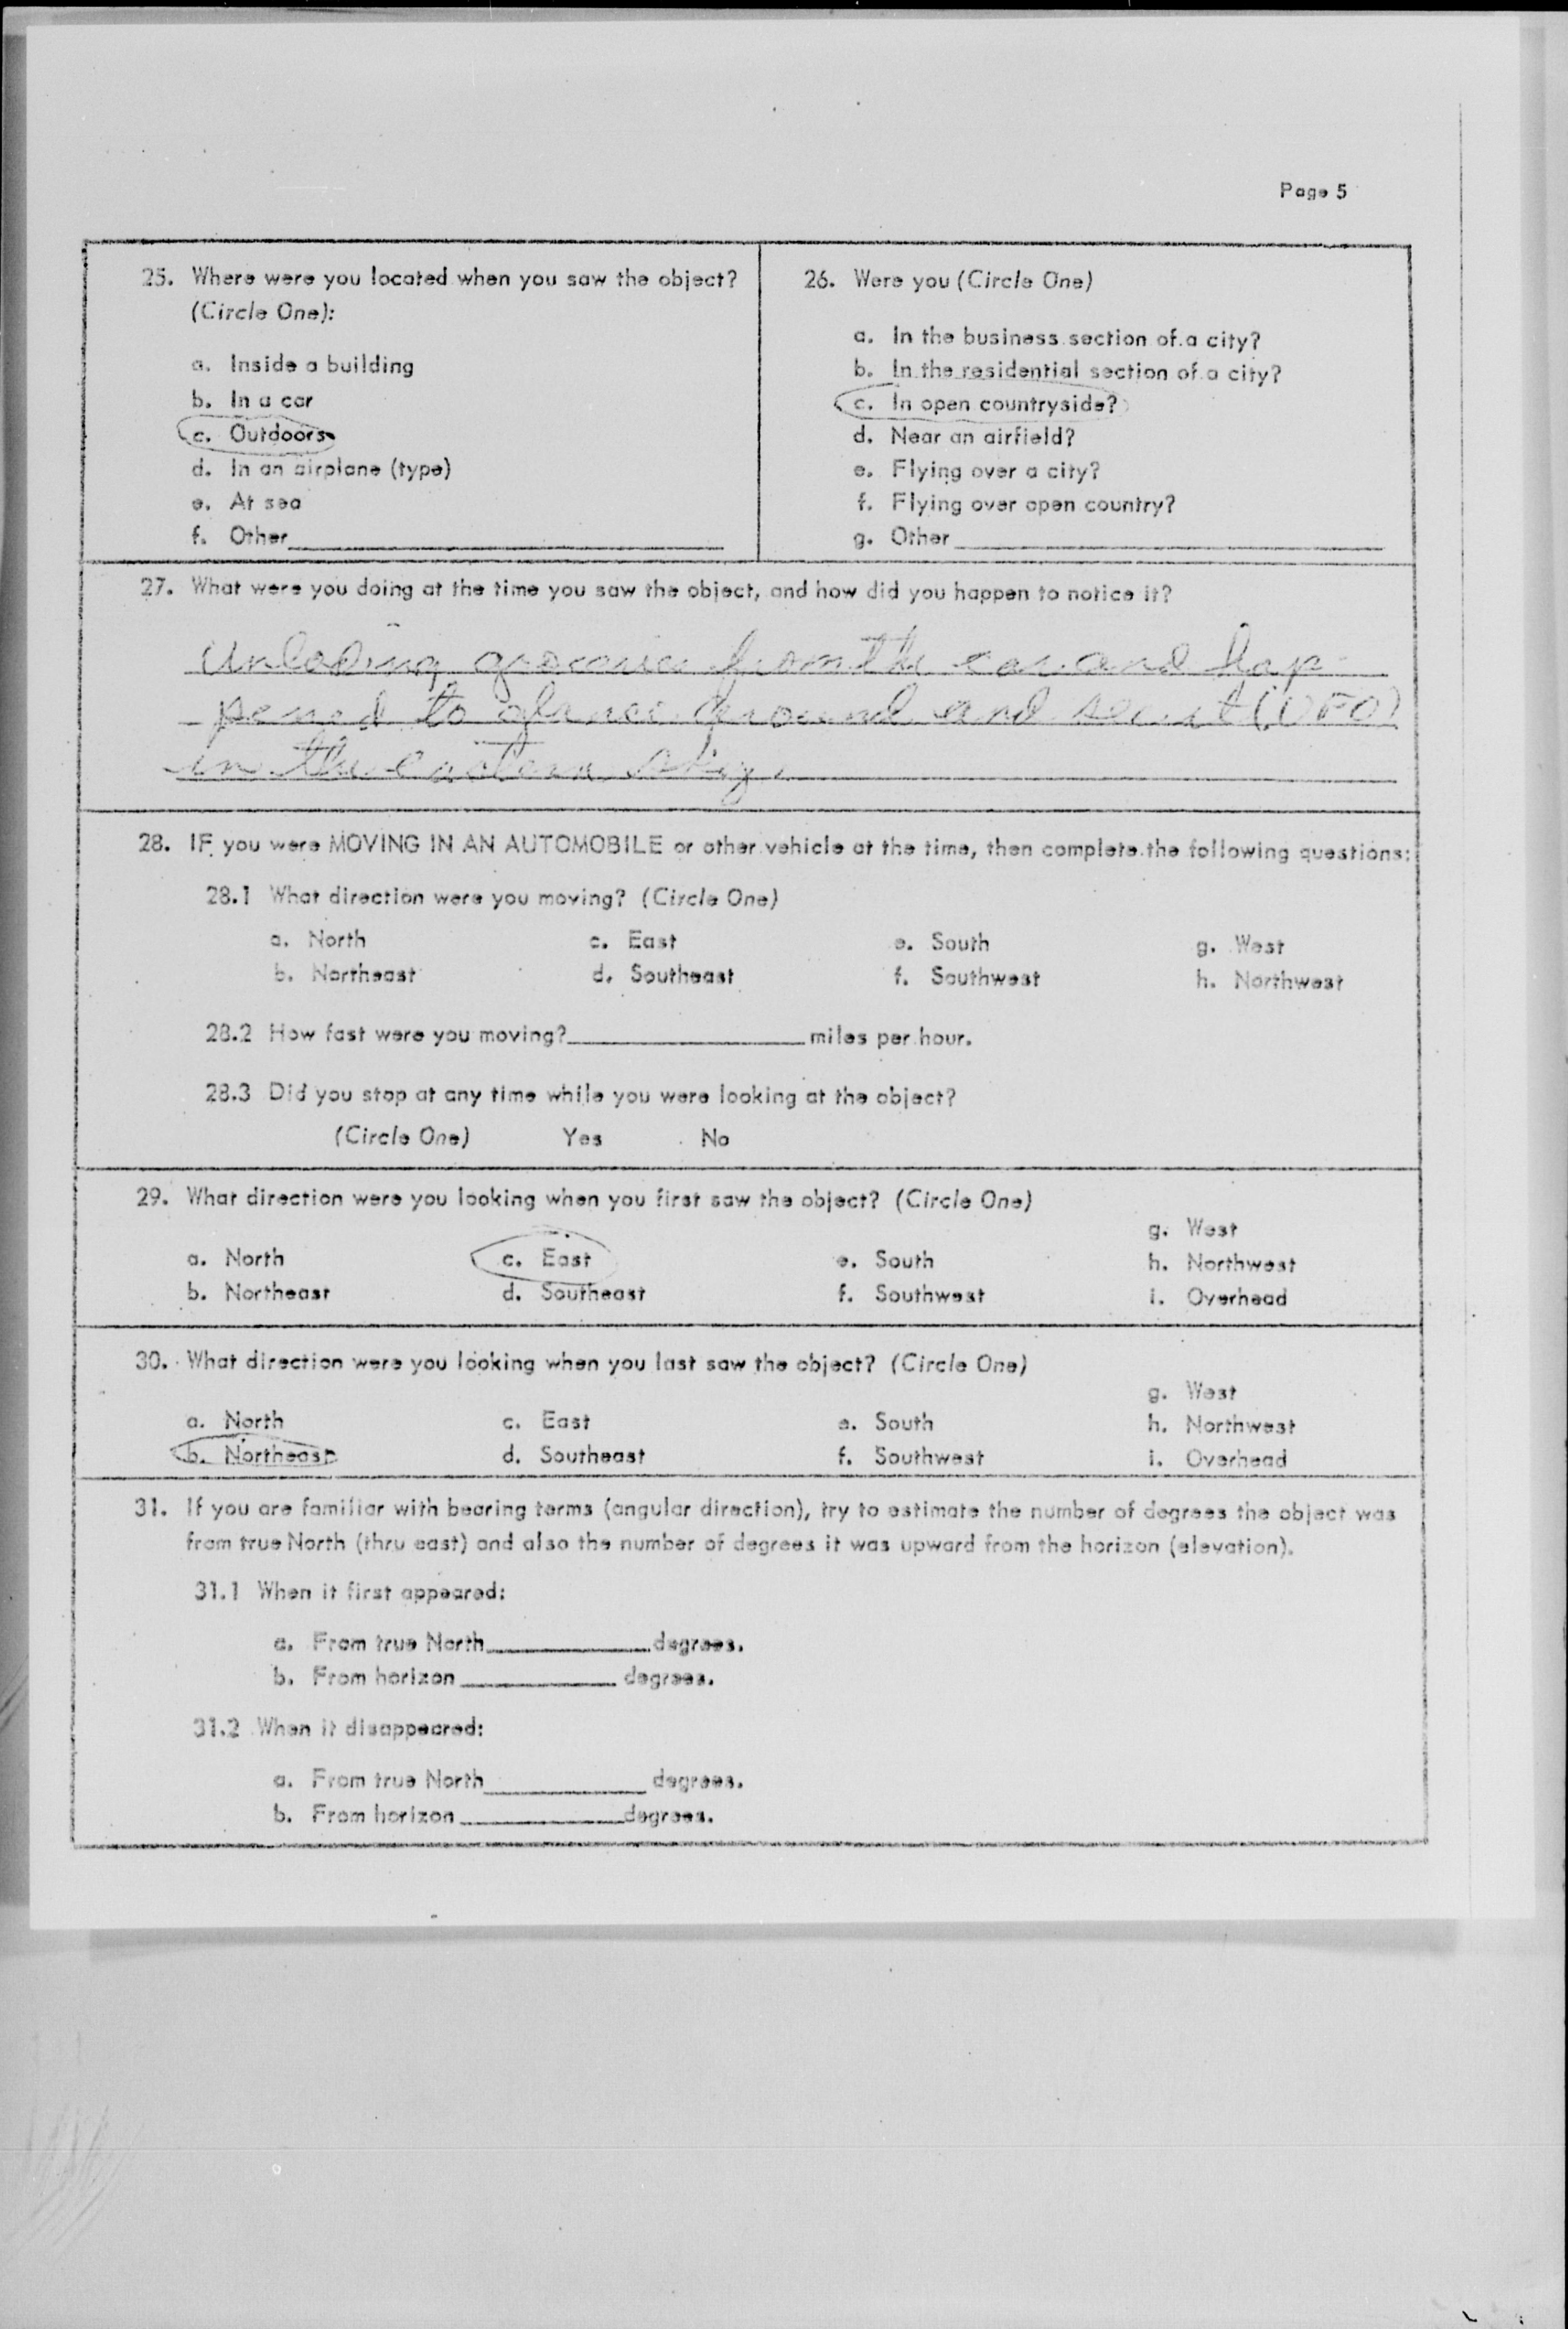 Page 5
25. Where were you located when you saw the object?
(Circle One):
a. Inside a building
b. In a car
c. Outdoors
d. In an airplane (type)
e. At sea
f. Other
26. Were you (Circle One)
a. In the business section of a city?
b. In the residential section of a city?
c. In open countryside?
d. Near an airfield?
e. Flying over a city?
f. Flying over open country?
g. Other
27. What were you doing at the time you saw the object, and how did you happen to notice it?
Unloading groceries from the car and hap-
pened to glance around and seen it (UFO)
in the eastern sky.
28. IF you were MOVING IN AN AUTOMOBILE or other vehicle at the time, then complete the following questions:
28.1 What direction were you moving? (Circle One)
a. North c. East e. South g. West
b. Northeast d. Southeast f. Southwest h. Northwest
28.2 How fast were you moving? miles per hour.
28.3 Did you stop at any time while you were looking at the object?
(Circle One) Yes No
29. What direction were you looking when you first saw the object? (Circle One)
g. West
a. North c. East e. South h. Northwest
b. Northeast d. Southeast f. Southwest i. Overhead
30. What direction were you looking when you last saw the object? (Circle One)
g. West
a. North c. East e. South h. Northwest
b. Northeast d. Southeast f. Southwest i. Overhead
31. If you are familiar with bearing terms (angular direction), try to estimate the number of degrees the object was
from true North (thru east) and also the number of degrees it was upward from the horizon (elevation).
31.1 When it first appeared:
a. From true North degrees.
b. From horizon degrees.
31.2 When it disappeared:
a. From true North degrees.
b. From horizon degrees.